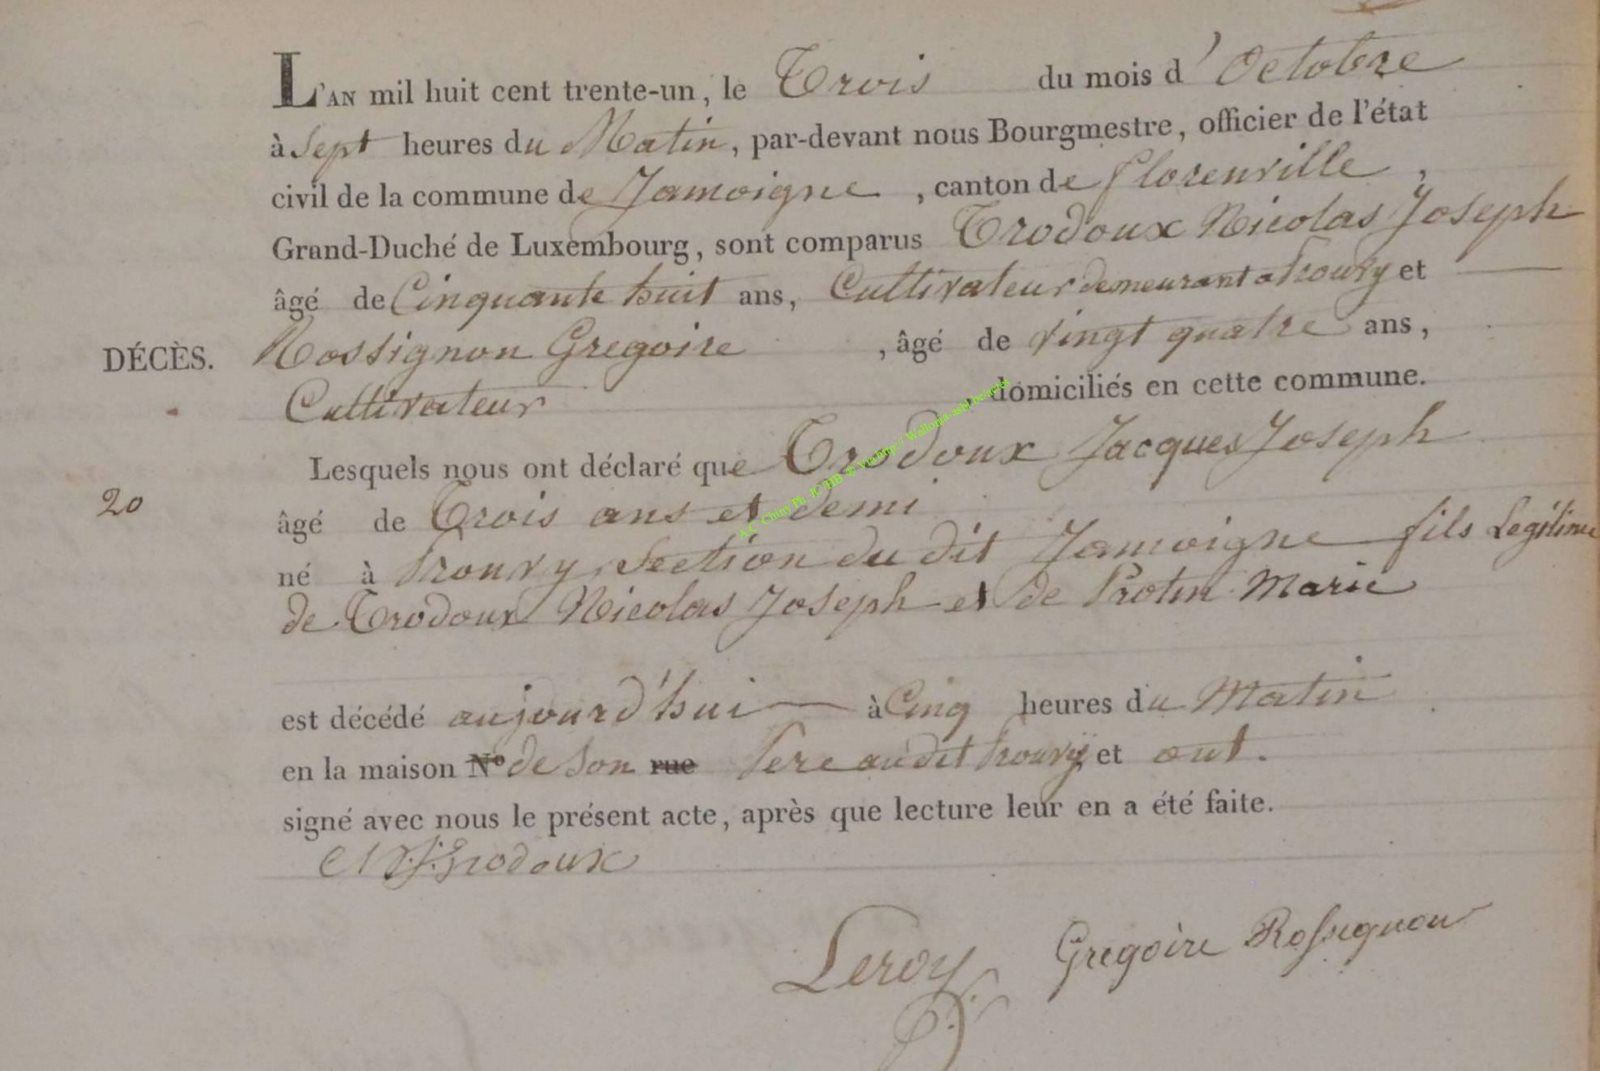 L'AN mil huit cent trente-un, le Trois du mois d'Octobre
à Sept heures du Matin, par-devant nous Bourgmestre, officier de l'état
civil de la commune de Jamoigne, canton de florenville,
Grand-Duché de Luxembourg, sont comparus Trodoux Nicolas Joseph
âgé de Cinquante huit ans, Cultivateur demeurant a Prouvy et
DÉCÈS. Rossignon Gregoire, âgé de vingt quatre ans,
Cultivateur domiciliés en cette commune.
Lesquels nous ont déclaré que Trodoux Jacques Joseph
20 âgé de Trois ans et demi
né à Prouvy, Section du dit Jamoigne fils Legitime
de Trodoux Nicolas Joseph et de Protin Marie
est décédé aujourd'hui à Cinq heures du Matin
en la maison N° de Son rue Pere audit Prouvy et ont.
signé avec nous le présent acte, après que lecture leur en a été faite.
N. J. Trodoux
Leroy Gregoire Rossignon